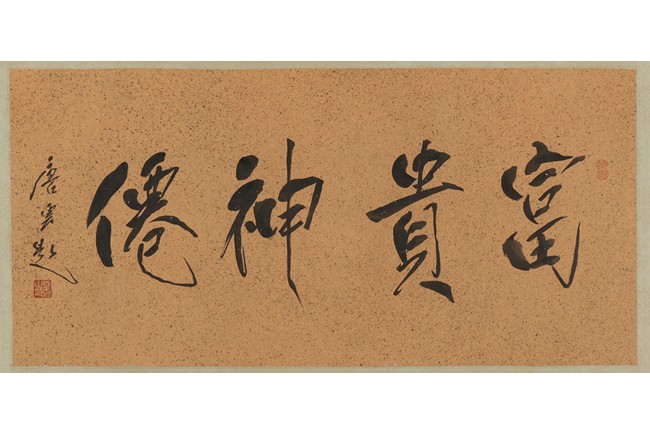 富貴神僊
唐雲題